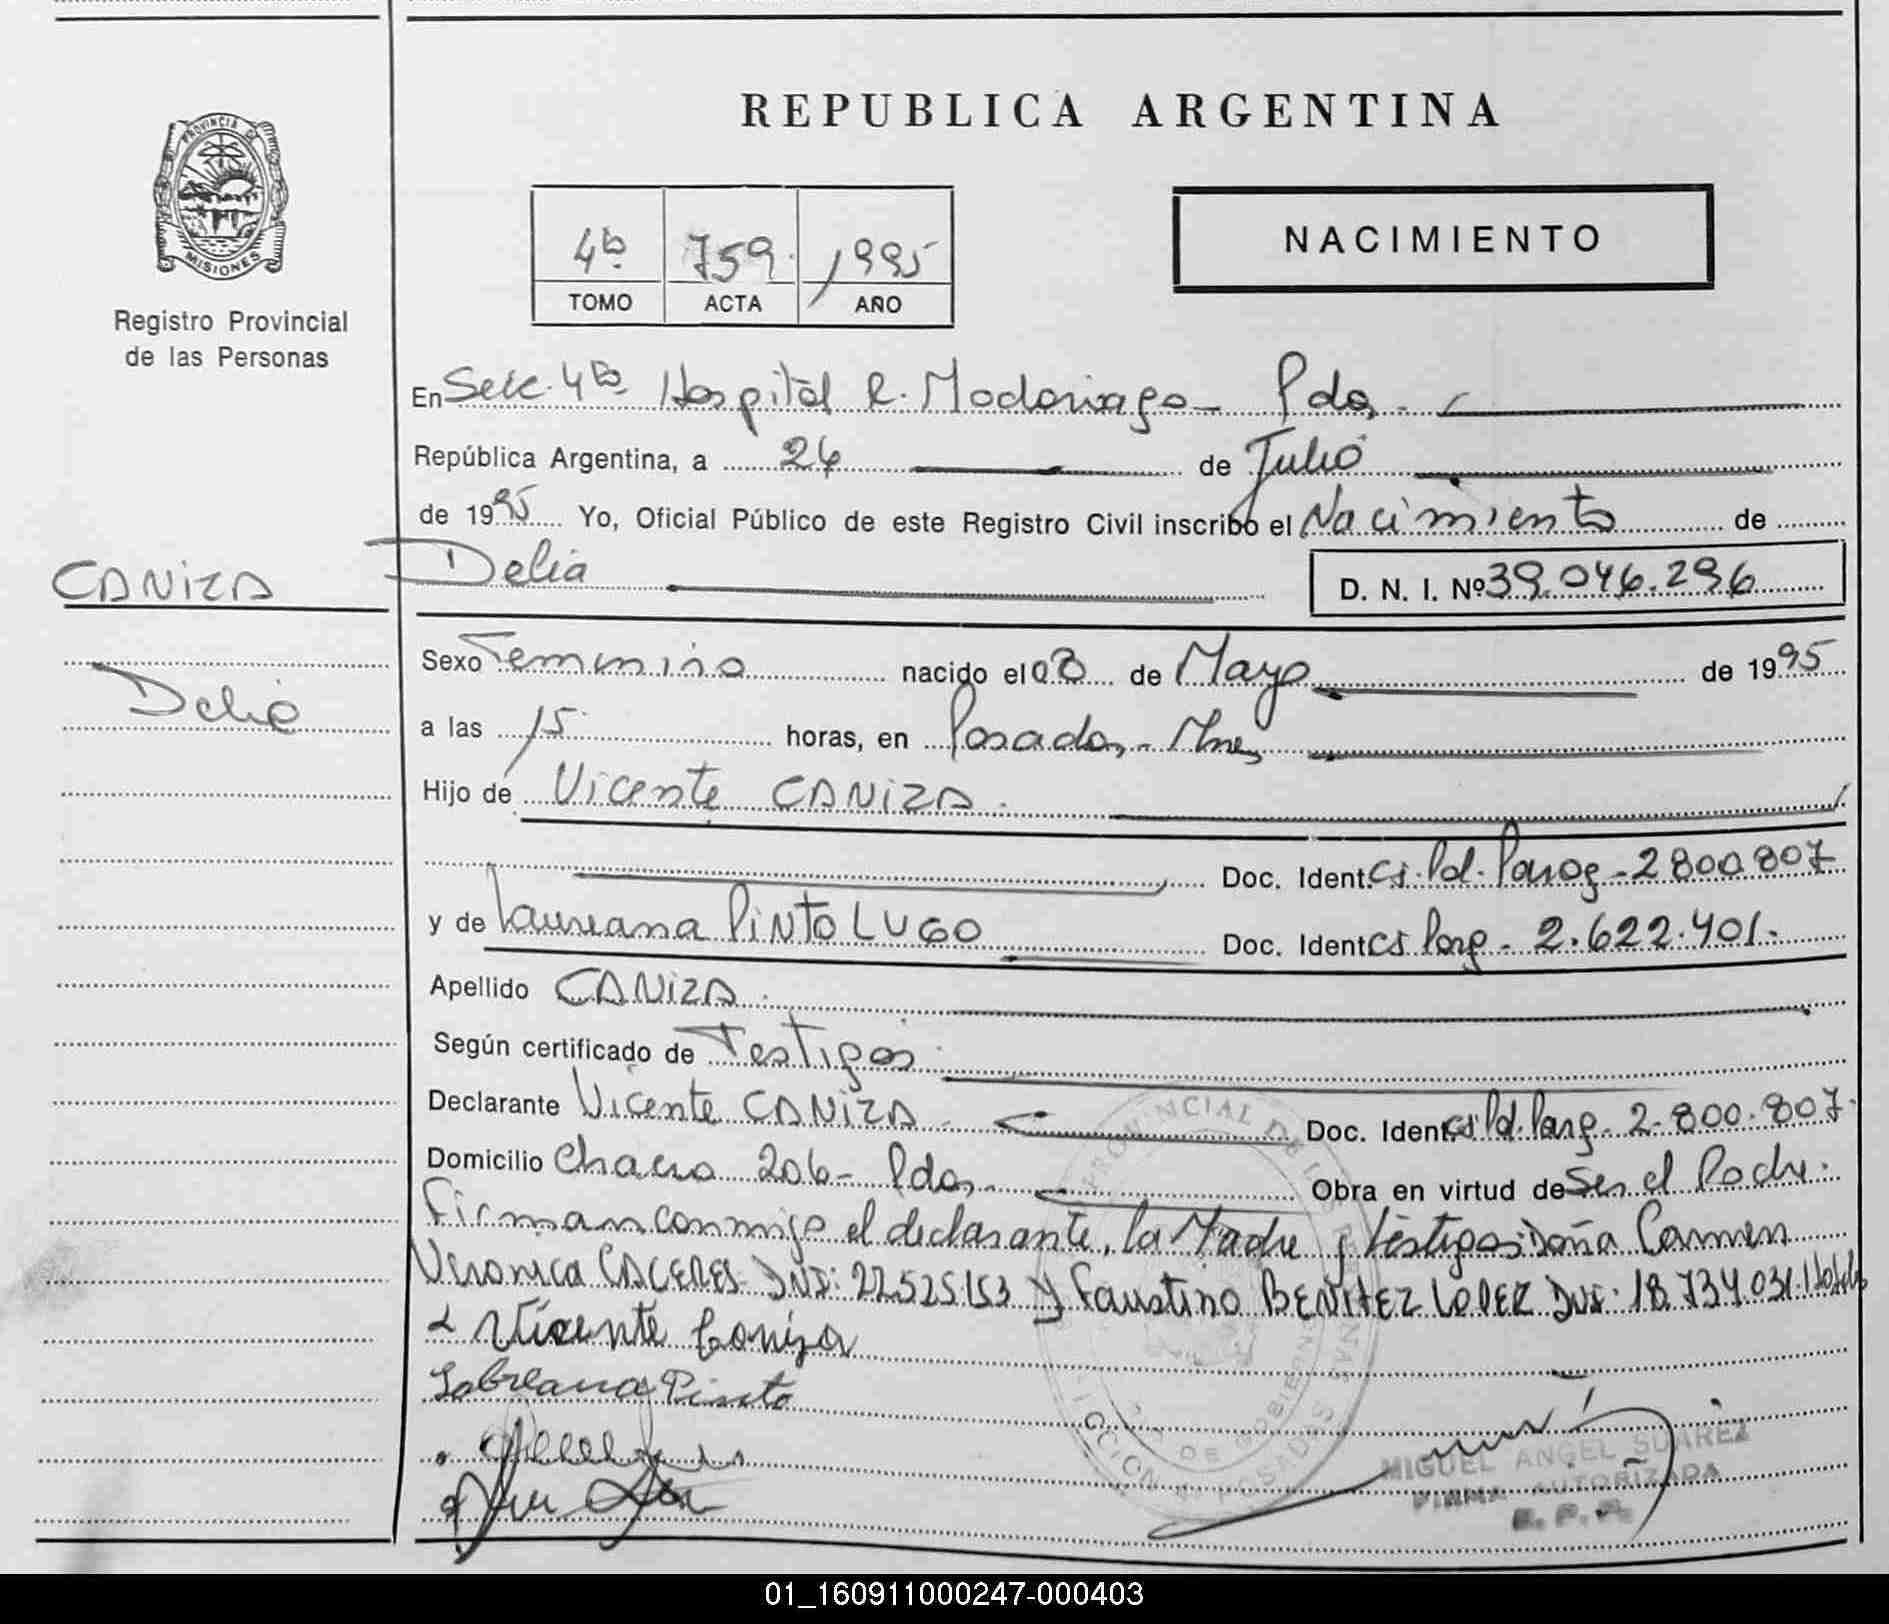 PROVINCIA DE
MISIONES
Registro Provincial
de las Personas
CANIZA
Delia
REPUBLICA ARGENTINA
4ta 759 1995
TOMO ACTA AÑO
NACIMIENTO
En Secc. 4ta Hospital R. Madariaga - Pdas.
República Argentina, a 24 de Julio
de 1995 Yo, Oficial Público de este Registro Civil inscribo el Nacimiento de
Delia D. N. I. Nº 39.046.296
Sexo Femenino nacido el 08 de Mayo de 1995
a las 15 horas, en Posadas - Mnes
Hijo de Vicente CANIZA.
Doc. Ident. CI. Pol. Parag - 2800.807
y de Laureana PINTO LUGO Doc. Ident. CI Parg - 2.622.401.
Apellido CANIZA.
Según certificado de Testigos.
Declarante Vicente CANIZA Doc. Ident. CI Pol. Parg. 2.800.807.
Domicilio Chacra 206 - Pdas. Obra en virtud de Ser el Padre.
Firman conmigo el declarante, la Madre y testigos: Doña Carmen
Veronica CACERES DNI: 22.525.153 y Faustino BENITEZ LOPEZ DNI: 18.734.031.
Vicente Caniza
Labreana Pinto
MIGUEL ANGEL SUAREZ
FIRMA AUTORIZADA
R. P. P.
01_160911000247-000403